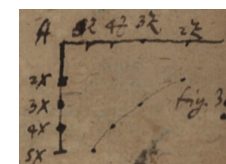 A 5Z 4Z 3Z 2Z
2X
3X
4X
5X
Fig. 3.